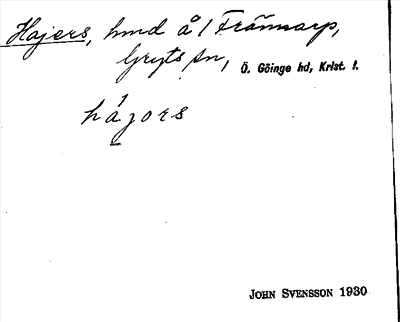 Hajers, hmd å 1 Främsarp,
Gryts sn, Ö. Göinge hd, Krist. l.
hájors
JOHN SVENSSON 1930